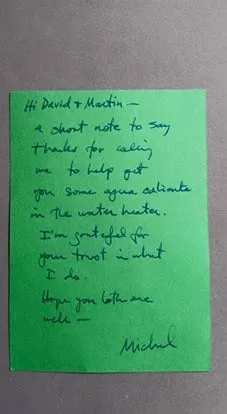 Hi David & Martin —
a short note to say
thanks for calling
me to help get
you some agua caliente
in the water heater.
I'm grateful for
your trust in what
I do.
Hope you both are
well —
Michael